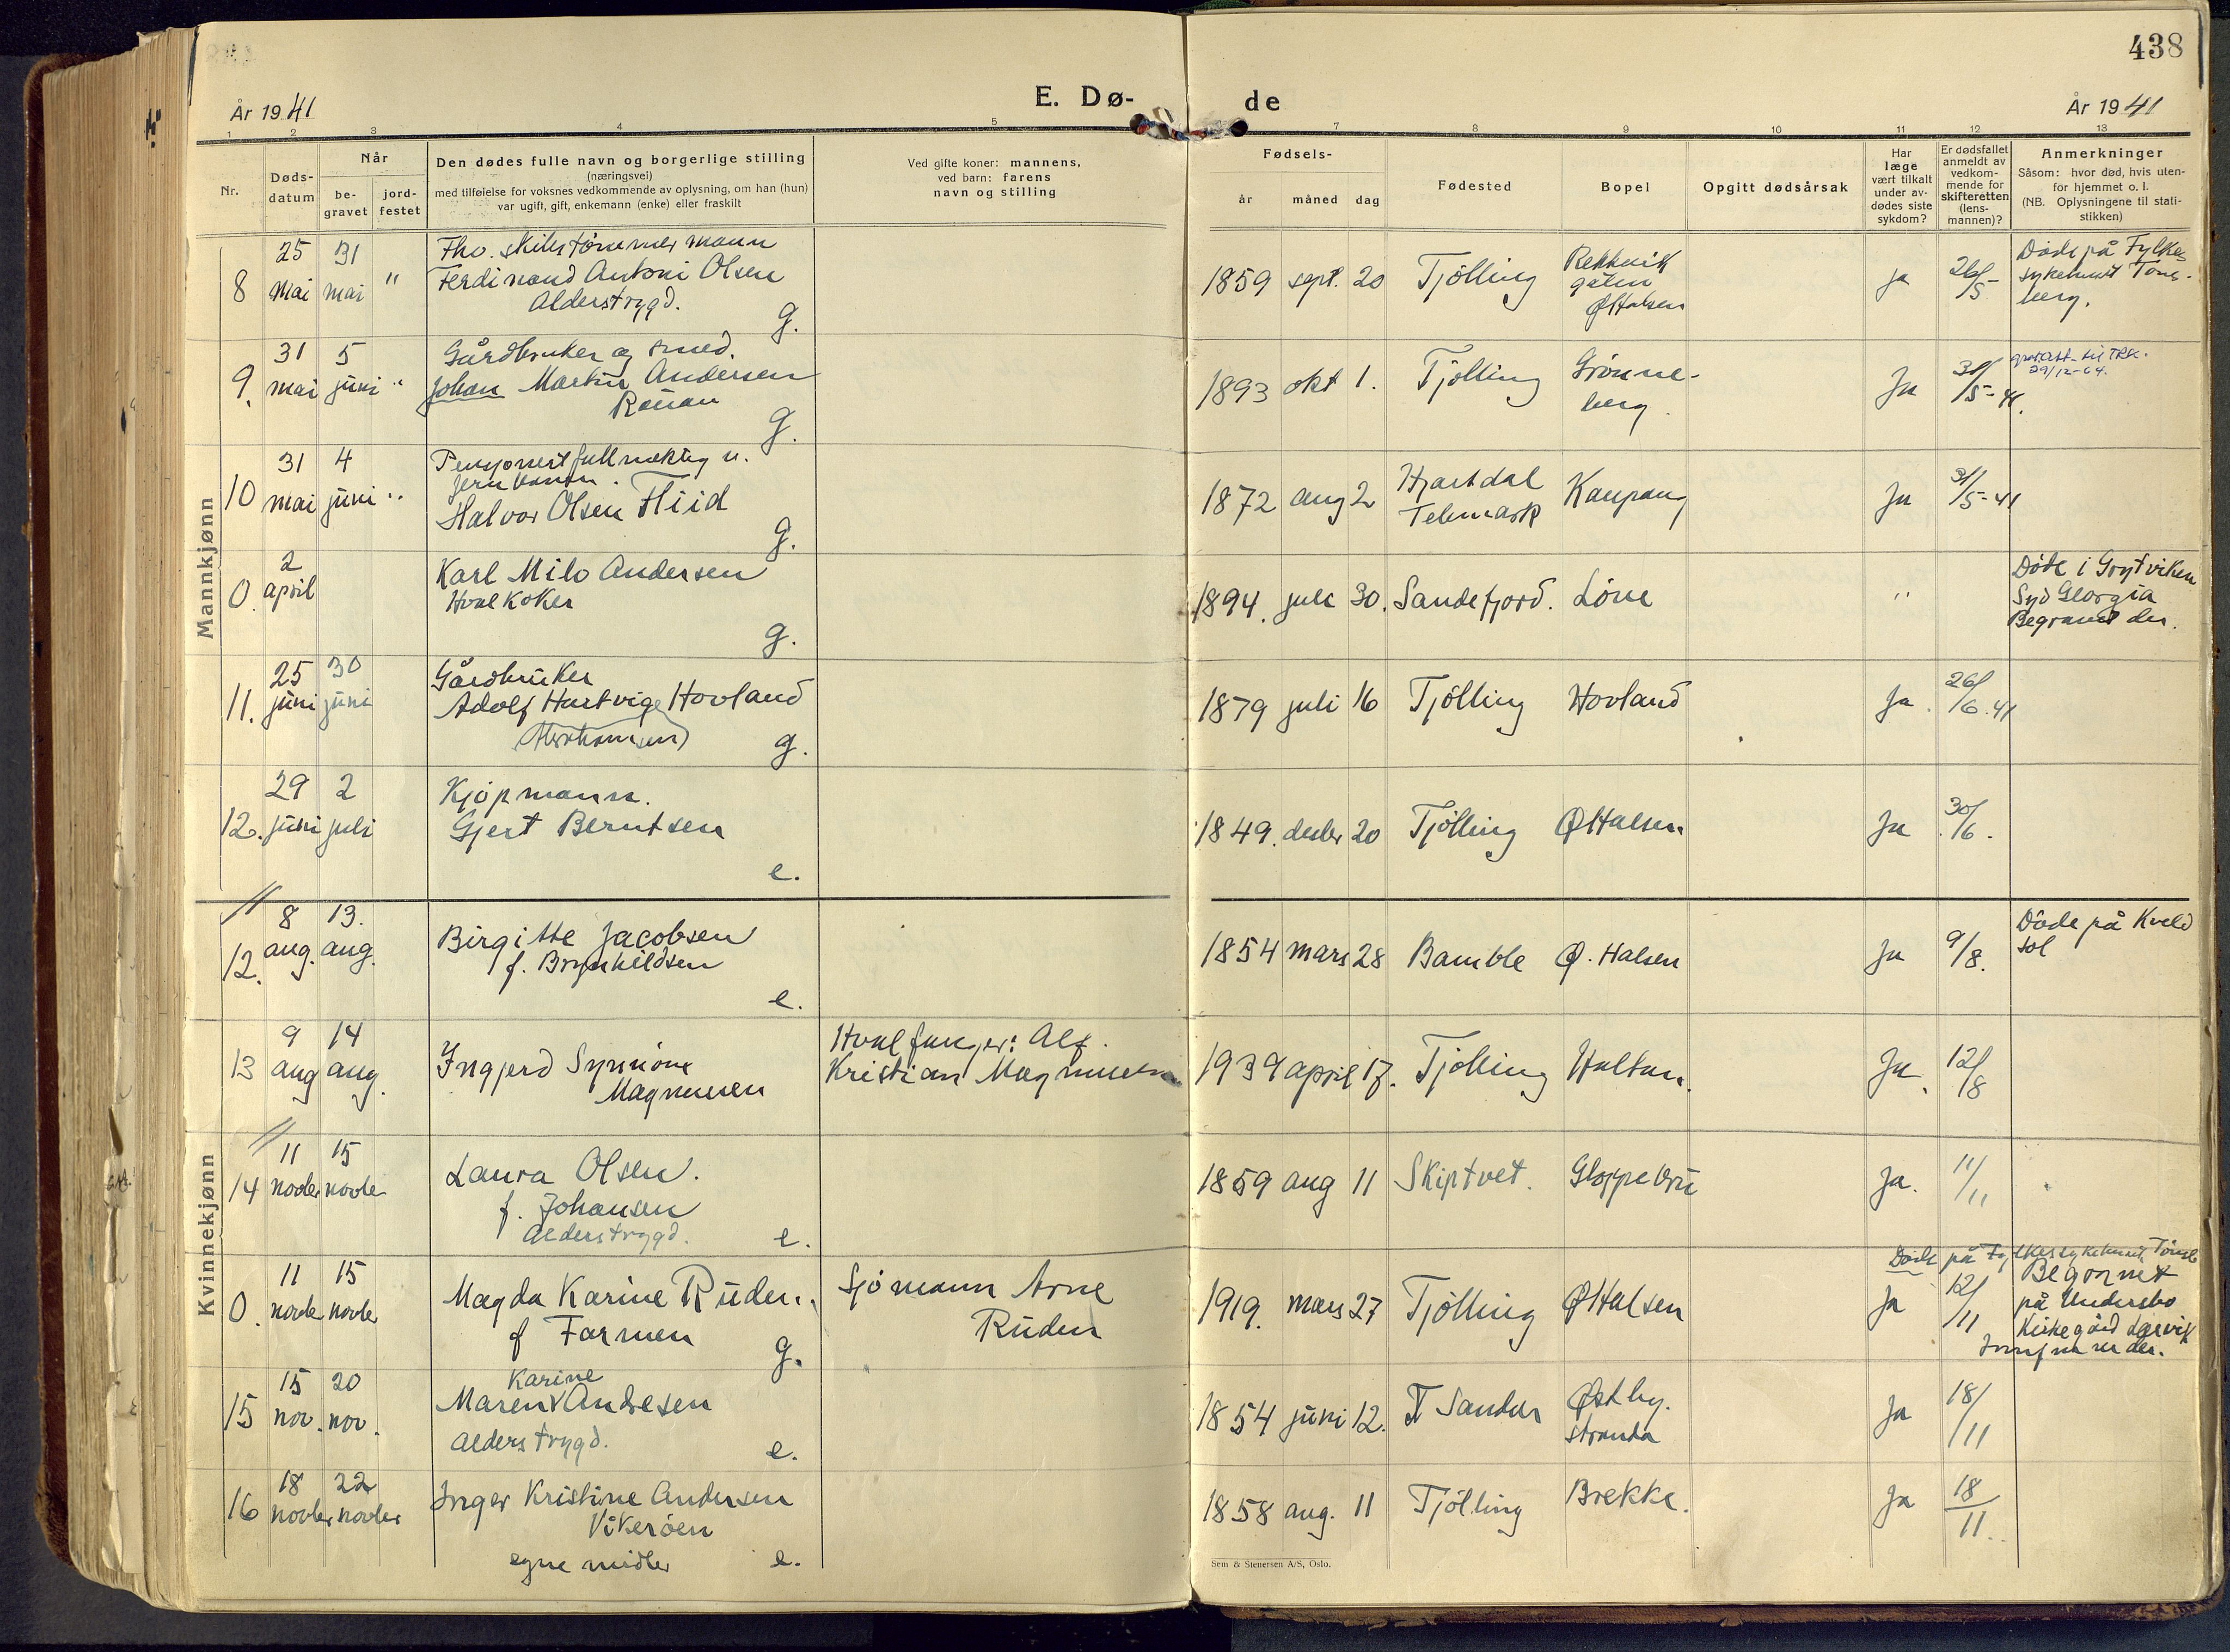 438
År 1941
E. Dø-
de
År 1941
1 2 3 4 5 7 8 9 10 11 12 13
Nr.
Døds-
datum
Når
be-
gravet
jord-
festet
Den dødes fulle navn og borgerlige stilling
(næringsvei)
med tilføielse for voksnes vedkommende av oplysning, om han (hun)
var ugift, gift, enkemann (enke) eller fraskilt
Ved gifte koner: mannens,
ved barn: farens
navn og stilling
Fødsels-
år måned dag
Fødested
Bopel
Opgitt dødsårsak
Har
læge
vært tilkalt
under av-
dødes siste
sykdom?
Er dødsfallet
anmeldt av
vedkom-
mende for
skifteretten
(lens-
mannen)?
Anmerkninger
Såsom: hvor død, hvis uten-
for hjemmet o. l.
(NB. Oplysningene til stati-
stikken)
Mannkjønn
8
25
mai
31
mai
"
Fhv. skibstømmermann
Ferdinand Antoni Olsen
Alderstrygd.
g.
1859 sept. 20
Tjölling
Rekkvik
Ø Halsen
ja
26/5
Døde på Fylkes
sykehuset Töns-
berg.
9.
31
mai
5
juni
"
Gårdbruker og smed.
Johan Martin Andersen
g.
1893 okt 1.
Tjölling
Grönne-
berg
Ja
30/5-41.
29/12-64.
10
31
mai
4
juni
"
Pensjonert fullmektig v.
Halvor Olsen Fliid
g.
1872 aug 2
Hjartdal
Telemark
Kaupang
Ja
31/5-41
0.
2
april
Karl Milo Andersen
Hvalkoker
g.
1894. juli 30.
Sandefjord.
Löve
"
Döde i Grytviken
Syd Georgia
Begravet der.
11.
25
juni
30
juni
Gårdbruker
Adolf Hartvig Hovland
(Abrahamsen)
g.
1879 juli 16
Tjölling
Hovland
Ja.
26/6.41
12.
29
juni
2
juli
Kjöpmann.
Gjert Berntsen
e.
1849. desbr 20
Tjölling
Ø Halsen
Ja
30/6.
Kvinnekjønn
12.
8
aug.
13.
aug.
Birgitte Jacobsen
f. Brynhildsen
e.
1854 mars 28
Bamble
Ø. Halsen
Ja
9/8.
Döde på Kveld
sol
13
9
aug
14
aug.
Ingjerd Synnöve
Magnussen
Hvalfanger: Alf
Kristian Magnussen
1939 april 17.
Tjölling
Haltan.
Ja.
12/8
14
11
novbr
15
novbr
Laura Olsen.
f. Johansen
Alderstrygd.
e.
1859 aug 11
Skiptvet.
Ja.
11/11
0.
11
novbr
15
novbr
Magda Karine Ruden.
f Farmen
g.
Sjömann Arne
Ruden
1919. mars 27
Tjölling
Ø Halsen
Ja
12/11
Döde på Fylkessykehuset, Tönsb
Begravet
på Undersbo
Kirkegård Larvik
15
15
nov.
20
nov.
Karine
Maren Andresen
Alderstrygd.
e.
1854 juni 12.
Sandar
Østby.
stranda
Ja
18/11
16
18
novbr
22
novbr
Inger Kristine Andersen
Vikeröen
egne midler
e.
1858 aug. 11
Tjölling
Brekke.
Ja
18/11.
Sem & Stenersen A/S, Oslo.